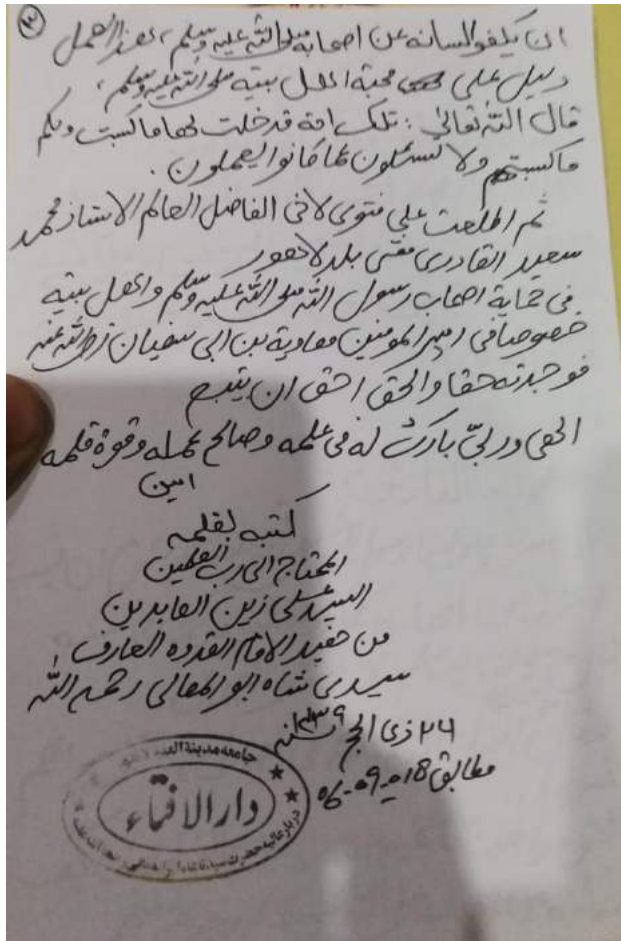 ٣
ان يكفو السانه عن اصحابه صلى الله عليه وسلم، هذا العمل
دليل على محبة اهل بيته صلى الله عليه وسلم،
قال الله تعالى: تلك امة قد خلت لها ما كسبت ولكم
ما كسبتم ولا تسئلون عما كانوا يعملون.
ثم اطلعت على فتوى لاخى الفاضل العالم الاستاذ محمد
سعيد القادرى مفتى بلد لاهور
فى حماية اصحاب رسول الله صلى الله عليه وسلم واهل بيته
خصوصا فى امير المومنين معاوية بن ابى سفيان رضى الله عنه
فوجدته حقا والحق احق ان يتبع
الحى وربى بارك له فى علمه وصالح عمله وقوة قلمه
امين
كتبه بقلمه
المحتاج الى رب العلمين
السيد على زين العابدين
من حفيد الامام القدوه العارف
سيدى شاه ابو المعالى رحمه الله
٢٤ ذى الحج ١٤٣٩ سنه
مطابق 018-09-06
جامعه مدينة
دار الافتاء